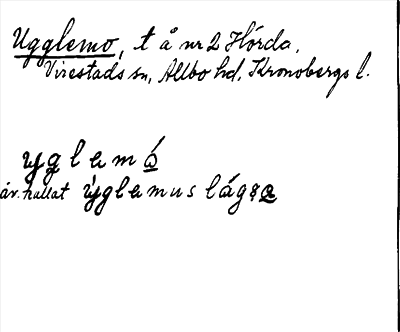 Ugglemo, t å nr 2 Hörda,
Virestads sn, Allbo hd, Kronobergs l.
yglemó
äv. kallat ýglemus lágsa